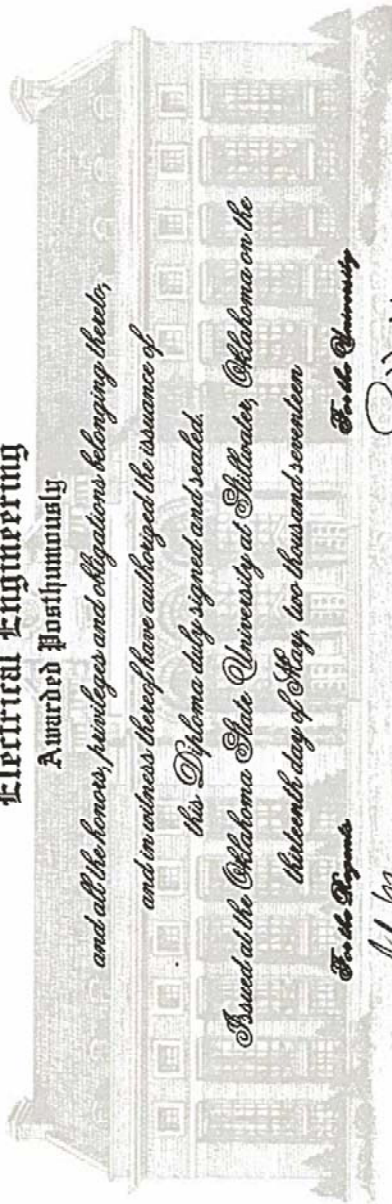 Electrical Engineering
Awarded Posthumously
and all the honors, privileges and obligations belonging thereto,
and in witness thereof have authorized the issuance of
this Diploma duly signed and sealed.
Issued at the Oklahoma State University at Stillwater, Oklahoma on the
thirteenth day of May, two thousand seventeen
For the Regents For the University